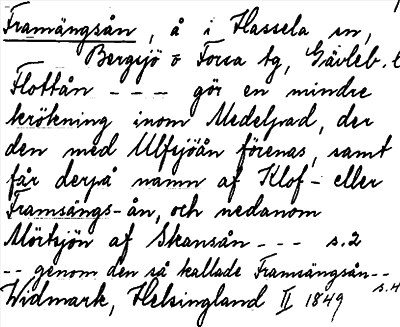 Framängsån, å i Hassela sn,
Bergsjö o Forsa tg, Gävleb. l
Flottån - - - gör en mindre
krökning inom Medelpad, der
den med Ulfsjöån förenas, samt
får derpå namn af Klof- eller
Framsängs-ån, och nedanom
Mörtsjön af Skansån - - - s.2
-- genom den så kallade Framsängsån--
Widmark, Helsingland II 1849 s.4